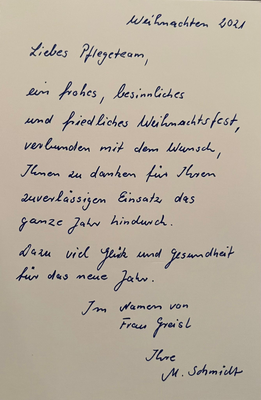 Weihnachten 2021
Liebes Pflegeteam,
ein frohes, besinnliches
und friedliches Weihnachtsfest,
verbunden mit dem Wunsch,
Ihnen zu danken für Ihren
zuverlässigen Einsatz das
ganze Jahr hindurch.
Dazu viel Glück und Gesundheit
für das neue Jahr.
Im Namen von
Frau Greisl
Ihre
M. Schmidt